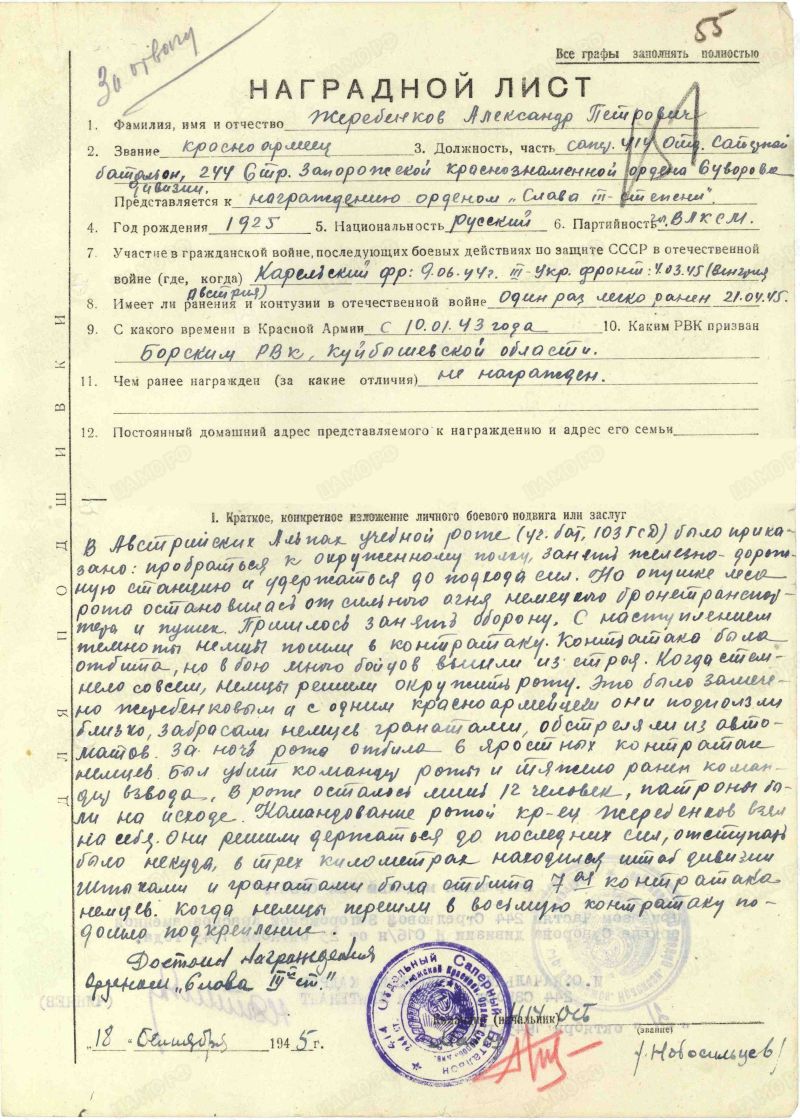 55
Все графы заполнять полностью
За отвагу
НАГРАДНОЙ ЛИСТ
1. Фамилия, имя и отчество Жеребенков Александр Петрович
2. Звание красноармеец 3. Должность, часть сапер 414 Отд. Саперный
батальон, 244 Стр. Запорожской краснознаменной ордена Суворова
дивизии.
Представляется к награждению орденом „Слава III-степени".
4. Год рождения 1925 5. Национальность русский 6. Партийность ВЛКСМ.
7. Участие в гражданской войне, последующих боевых действиях по защите СССР в отечественной
войне (где, когда) Карельский фр: 9.06.44г. III-Укр. фронт: 4.03.45 (Венгрия
Австрия)
8. Имеет ли ранения и контузии в отечественной войне Один раз легко ранен 21.04.45.
9. С какого времени в Красной Армии с 10.01.43 года 10. Каким РВК призван
Борским РВК, Куйбышевской области.
11. Чем ранее награжден (за какие отличия) не награжден.
12. Постоянный домашний адрес представляемого к награждению и адрес его семьи
ДЛЯ ПОДШИВКИ
I. Краткое, конкретное изложение личного боевого подвига или заслуг
В Австрийских Альпах учебной роте (уч. бат. 103 ГСД) было прика-
зано: пробраться к окруженному полку, занять железно-дорож-
ную станцию и удержаться до подхода сил. На опушке леса
рота остановилась от сильного огня немецкого бронетранспор-
тера и пушек. Пришлось занять оборону. С наступлением
темноты немцы пошли в контратаку. Контратака была
отбита, но в бою много бойцов вышли из строя. Когда стем-
нело совсем, немцы решили окружить роту. Это было замече-
но Жеребенковым и с одним красноармейцем они подползли
близко, забросали немцев гранатами, обстреляли из авто-
матов. За ночь рота отбила 6 яростных контратак
немцев. Был убит командир роты и тяжело ранен коман-
дир взвода. В роте осталось лишь 12 человек, патроны бы-
ли на исходе. Командование ротой кр-ец Жеребенков взял
на себя. Они решили держаться до последних сил, отступать
было некуда, в трех километрах находился штаб дивизии
Штыками и гранатами была отбита 7ая контратака
немцев. Когда немцы перешли в восьмую контратаку по-
дошло подкрепление.
Достоин награждения
Орденом „Слава III ст."
414 Отдельный Саперный Батальон
Командир (начальник) 414 ОСБ
„18" Сентября 1945 г.
(звание)
/Новосильцев/